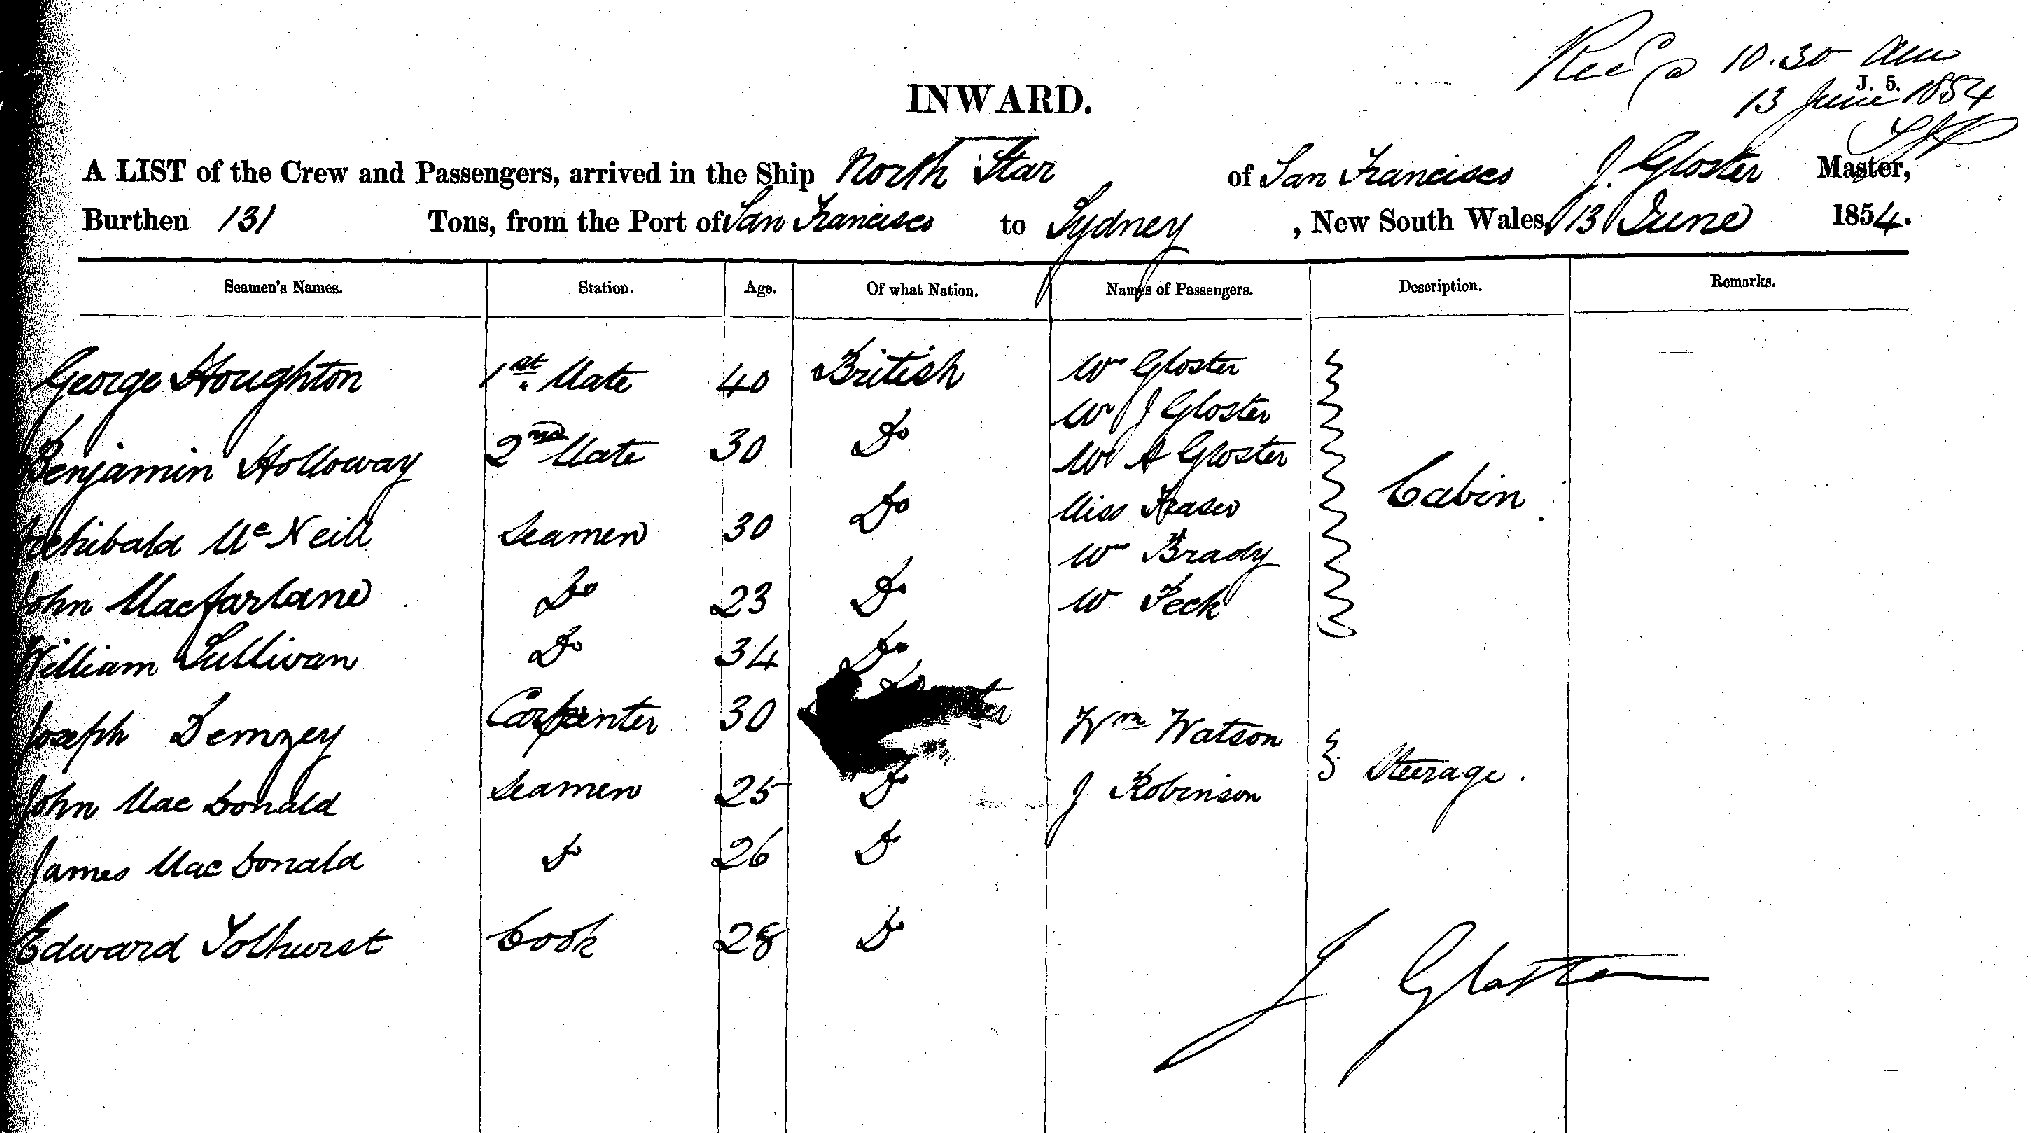 Recd 10.30 am
J. 5.
13 June 1854
INWARD.
A LIST of the Crew and Passengers, arrived in the Ship North Star of San Francisco J. Gloster Master,
Burthen 131 Tons, from the Port of San Francisco to Sydney, New South Wales, 13 June 1854.
Seamen's Names. Station. Age. Of what Nation. Names of Passengers. Description. Remarks.
George Houghton 1st. Mate 40 British Gloster
J Gloster
Benjamin Holloway 2nd Mate 30 Do A Gloster
Cabin
Archibald McNeill Seamen 30 Do Miss Fraser
Brady
John Macfarlane Do 23 Do Peck
William Sullivan Do 34 Do
Joseph Demzey Carpenter 30 Wm Watson
Steerage.
John MacDonald Seamen 25 Do J Robinson
James MacDonald Do 26 Do
Edward Tolhurst Cook 28 Do
J Gloster